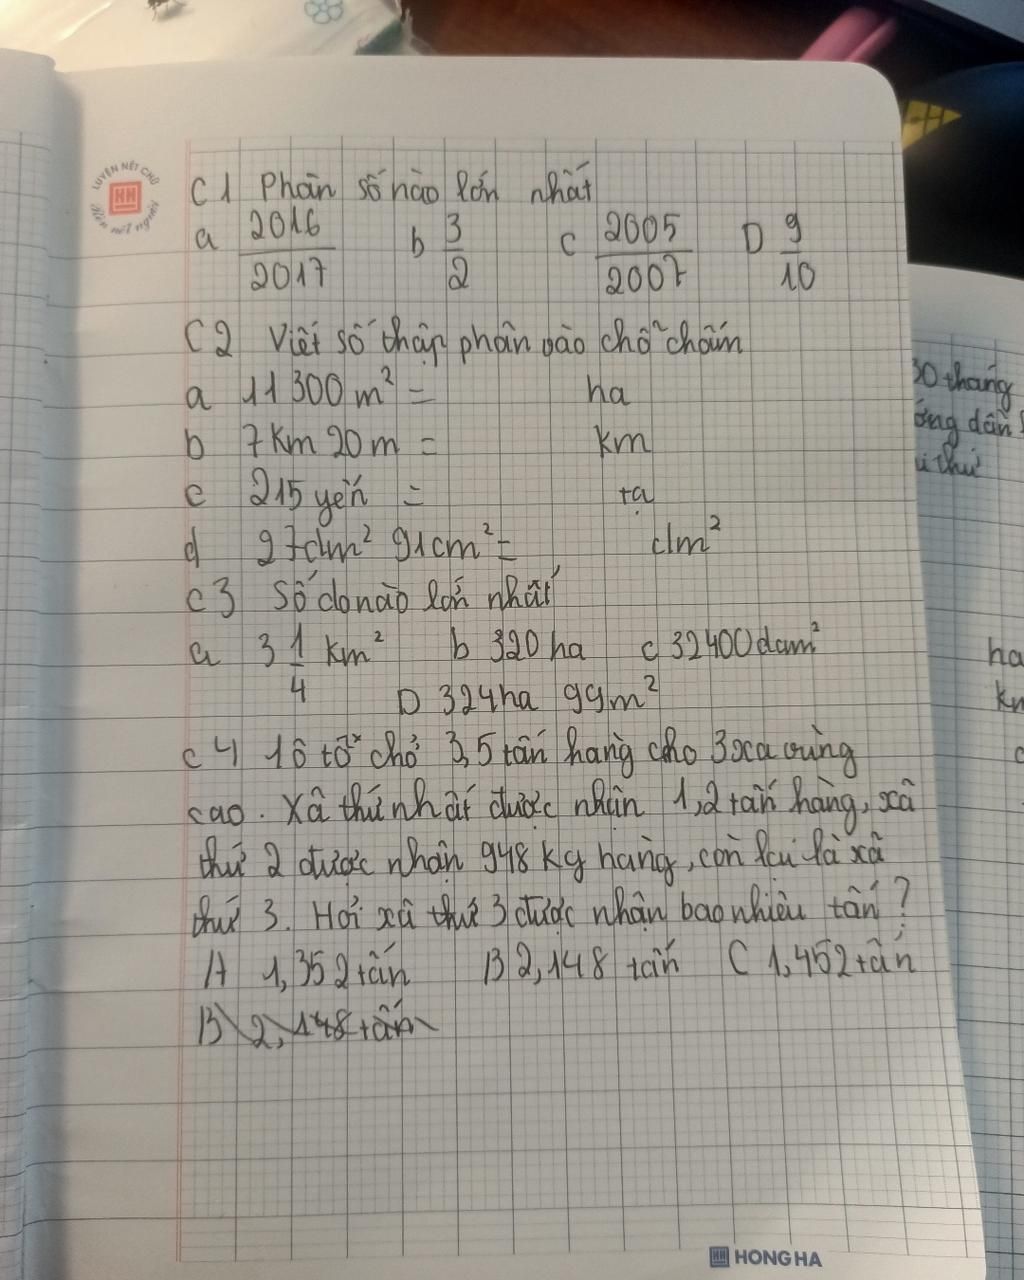 LUYỆN NÉT CHỮ
Rèn nết người
C1 Phân số nào lớn nhất
a 2016/2017 b 3/2 c 2005/2007 D 9/10
C2 Viết số thập phân vào chỗ chấm
a 11300 m² = ha
b 7km 20m = km
c 215 yến = tạ
d 97dm² 91cm² = dm²
C3 Số đo nào lớn nhất
a 3 1/4 km² b 320 ha c 32400 dam²
D 324ha 99m²
C4 1ô tô chở 3,5 tấn hàng cho 3 xa vùng
cao. Xã thứ nhất được nhận 1,2 tấn hàng, xã
thứ 2 được nhận 948 kg hàng, còn lại là xã
thứ 3. Hỏi xã thứ 3 được nhận bao nhiêu tấn?
A 1,352 tấn B 2,148 tấn C 1,452 tấn
B 2,148 tấn
HONG HA
30 tháng
dẫn
thứ
ha